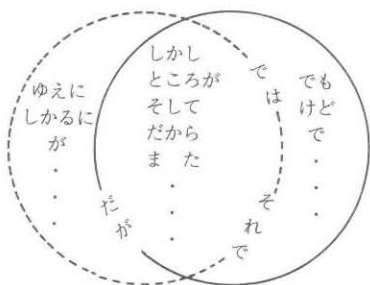 ゆえに
しかるに
が
・
・
・
だが
しかし
ところが
そして
だから
また
・
・
・
では
それで
でも
けど
で
・
・
・